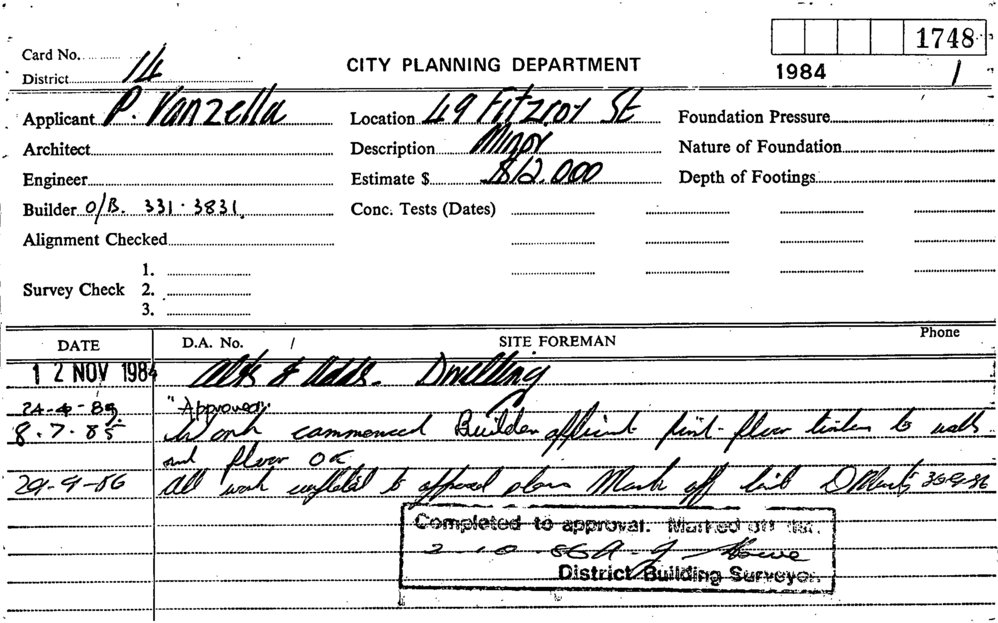 1748
Card No.
1984 1
District 14
CITY PLANNING DEPARTMENT
Applicant P. Vanzella
Location 49 Fitzroy St
Foundation Pressure
Architect
Description Minor
Nature of Foundation
Engineer
Estimate $ $12.000
Depth of Footings
Builder O/B. 331·3831.
Conc. Tests (Dates)
Alignment Checked
1.
Survey Check 2.
3.
DATE D.A. No. / SITE FOREMAN Phone
12 NOV 1984 Alts & Adds. Dwelling
24-4-85 "Approved"
8.7.85 Work commenced Builder floor to walls
and floor OK
29-9-86 All work completed to approved plans Mark off list 30-9-86
Completed to approval. Marked off list.
2-10-86 A-J
District Building Surveyor.